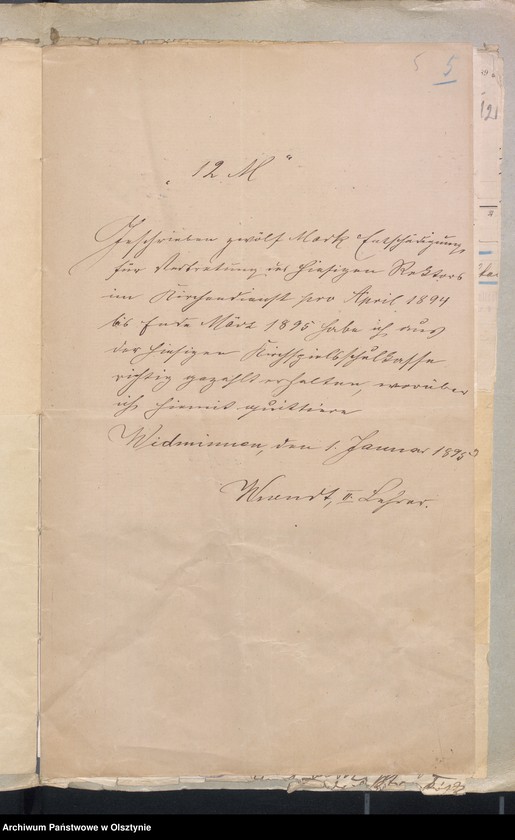 5
„12 M“
Geschrieben zwölf Mark Entschädigung
für Vertretung des hiesigen Rektors
im Kirchendienst pro April 1894
bis Ende März 1895 habe ich aus
der hiesigen Kirchspielsschulkasse
richtig gezahlt erhalten, worüber
ich hiermit quittiere
Widminnen, den 1. Januar 1895
Wendt, II. Lehrer.
12
Archiwum Państwowe w Olsztynie